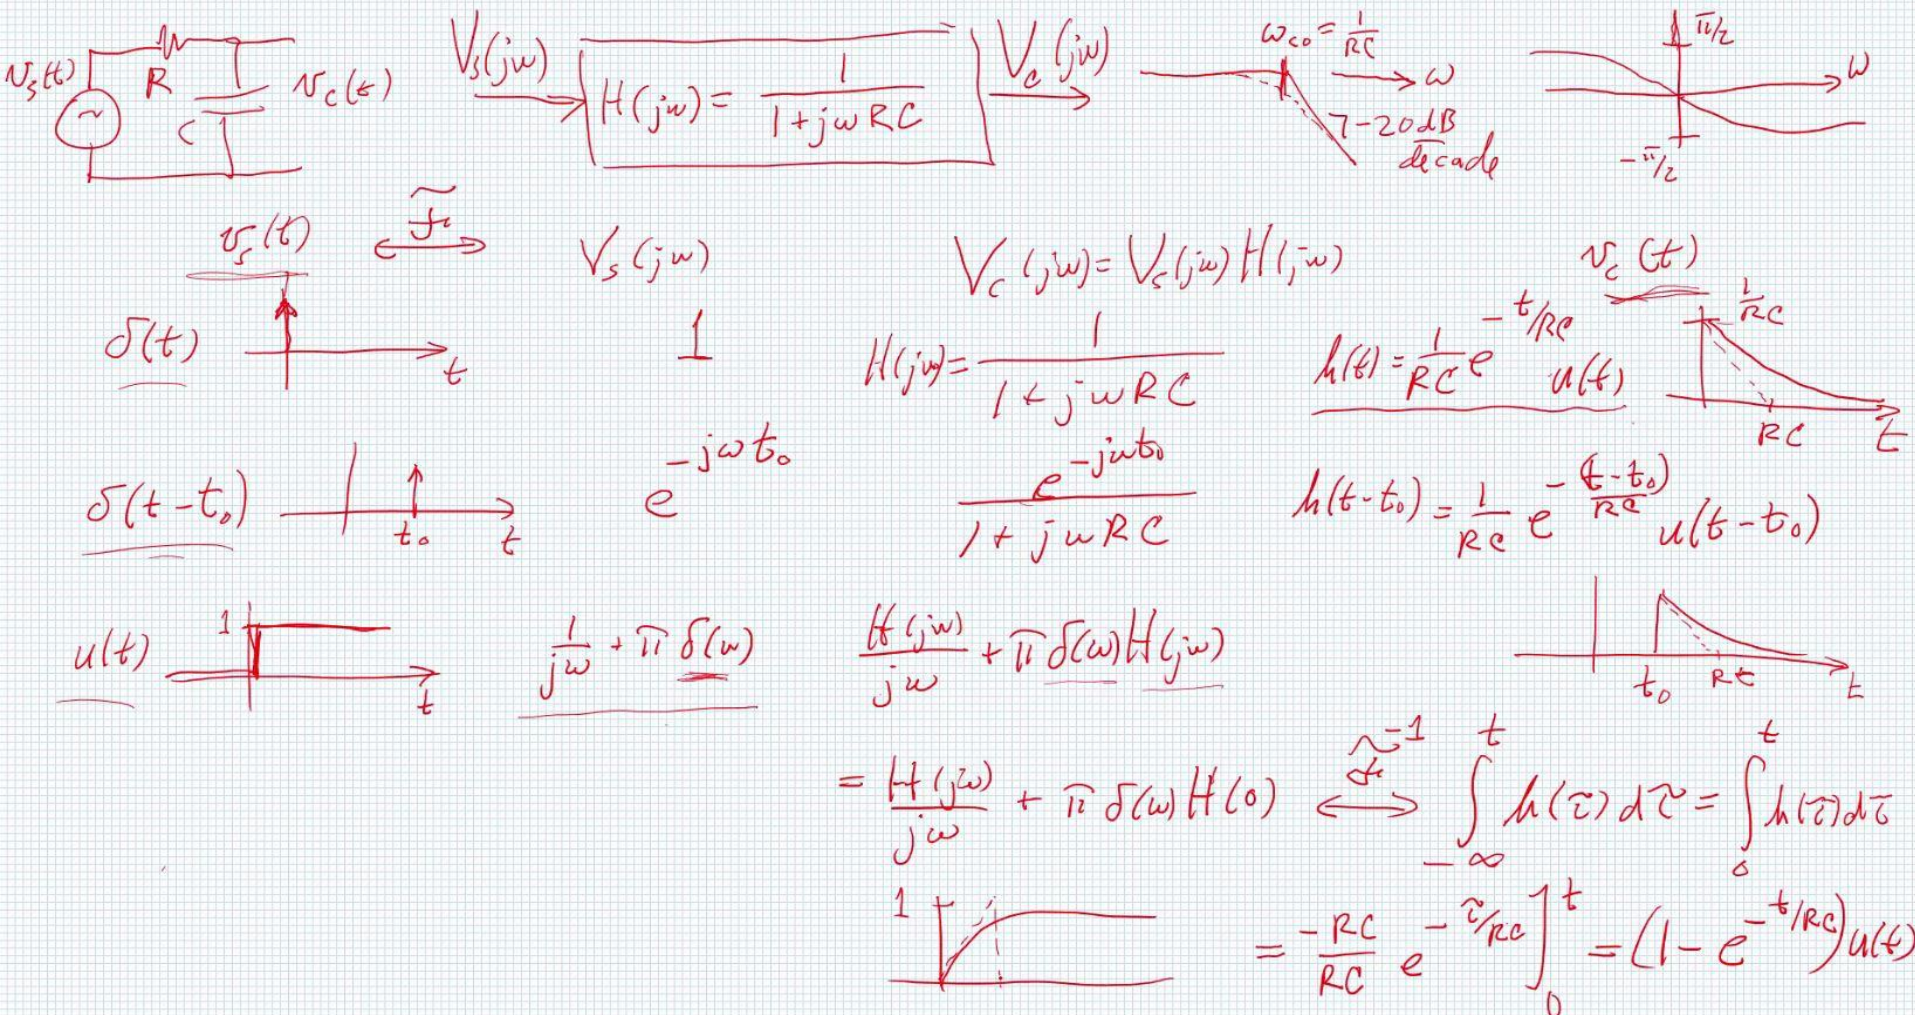 v_s(t) R C v_c(t) V_s(jω) H(jω) = 1/(1+jωRC) V_c(jω) ω_co = 1/RC ω -20dB/decade π/2 ω -π/2
v_s(t) ⟷ℱ V_s(jω) V_c(jω) = V_s(jω) H(jω) v_c(t)
δ(t) t 1 H(jω) = 1/(1+jωRC) h(t) = 1/RC e^{-t/RC} u(t) 1/RC RC t
δ(t-t₀) t₀ t e^{-jωt₀} e^{-jωt₀}/(1+jωRC) h(t-t₀) = 1/RC e^{-(t-t₀)/RC} u(t-t₀)
t₀ RC t
u(t) 1 t 1/jω + π δ(ω) H(jω)/jω + π δ(ω) H(jω)
= H(jω)/jω + π δ(ω) H(0) ⟷ℱ⁻¹ ∫_{-∞}^{t} h(τ) dτ = ∫_0^t h(τ) dτ
1 = -RC/RC e^{-τ/RC} ]_0^t = (1 - e^{-t/RC}) u(t)